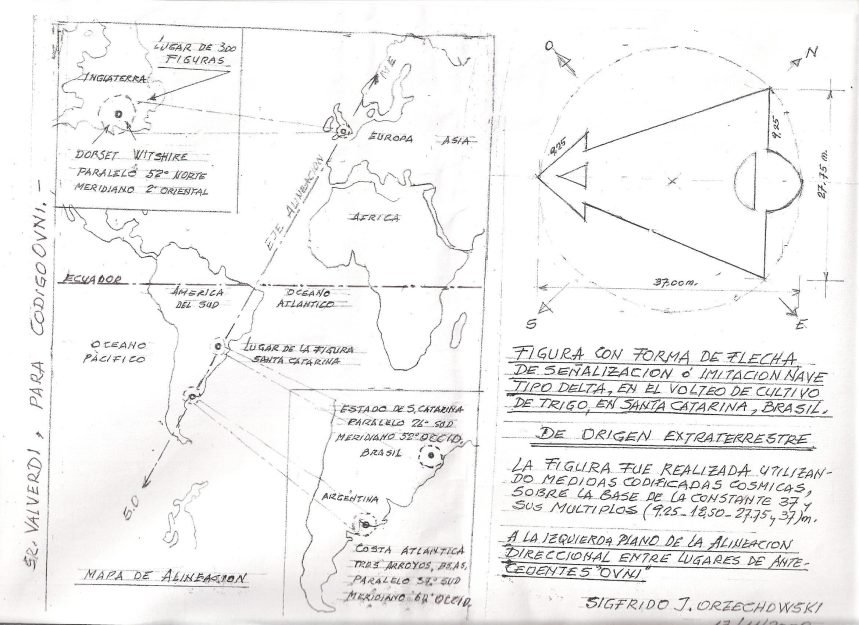 SR. VALVERDI, PARA CODIGO OVNI.-
LUGAR DE 300
FIGURAS
INGLATERRA
DORSET WITSHIRE
PARALELO 52º NORTE
MERIDIANO 2º ORIENTAL
N.E
EUROPA
ASIA
EJE ALINEACION
AFRICA
ECUADOR
AMERICA
DEL SUD
OCEANO
ATLANTICO
OCEANO
PACIFICO
LUGAR DE LA FIGURA
SANTA CATARINA
S.O
ESTADO DE S. CATARINA
PARALELO 26º SUD
MERIDIANO 52º OCCID.
BRASIL
ARGENTINA
COSTA ATLANTICA
TRES ARROYOS, BS.AS,
PARALELO 37º SUD
MERIDIANO 60º OCCID.
MAPA DE ALINEACION
O
N
9,25
9,25
27,75 m.
37,00m.
S
E
FIGURA CON FORMA DE FLECHA
DE SEÑALIZACION ó IMITACION NAVE
TIPO DELTA, EN EL VOLTEO DE CULTIVO
DE TRIGO, EN SANTA CATARINA, BRASIL.
DE ORIGEN EXTRATERRESTRE
LA FIGURA FUE REALIZADA UTILIZAN-
DO MEDIDAS CODIFICADAS COSMICAS,
SOBRE LA BASE DE LA CONSTANTE 37 y
SUS MULTIPLOS (9,25-18,50-27,75 y 37)m.
A LA IZQUIERDA PLANO DE LA ALINEACION
DIRECCIONAL ENTRE LUGARES DE ANTE-
CEDENTES "OVNI"
SIGFRIDO J. ORZECHOWSKI